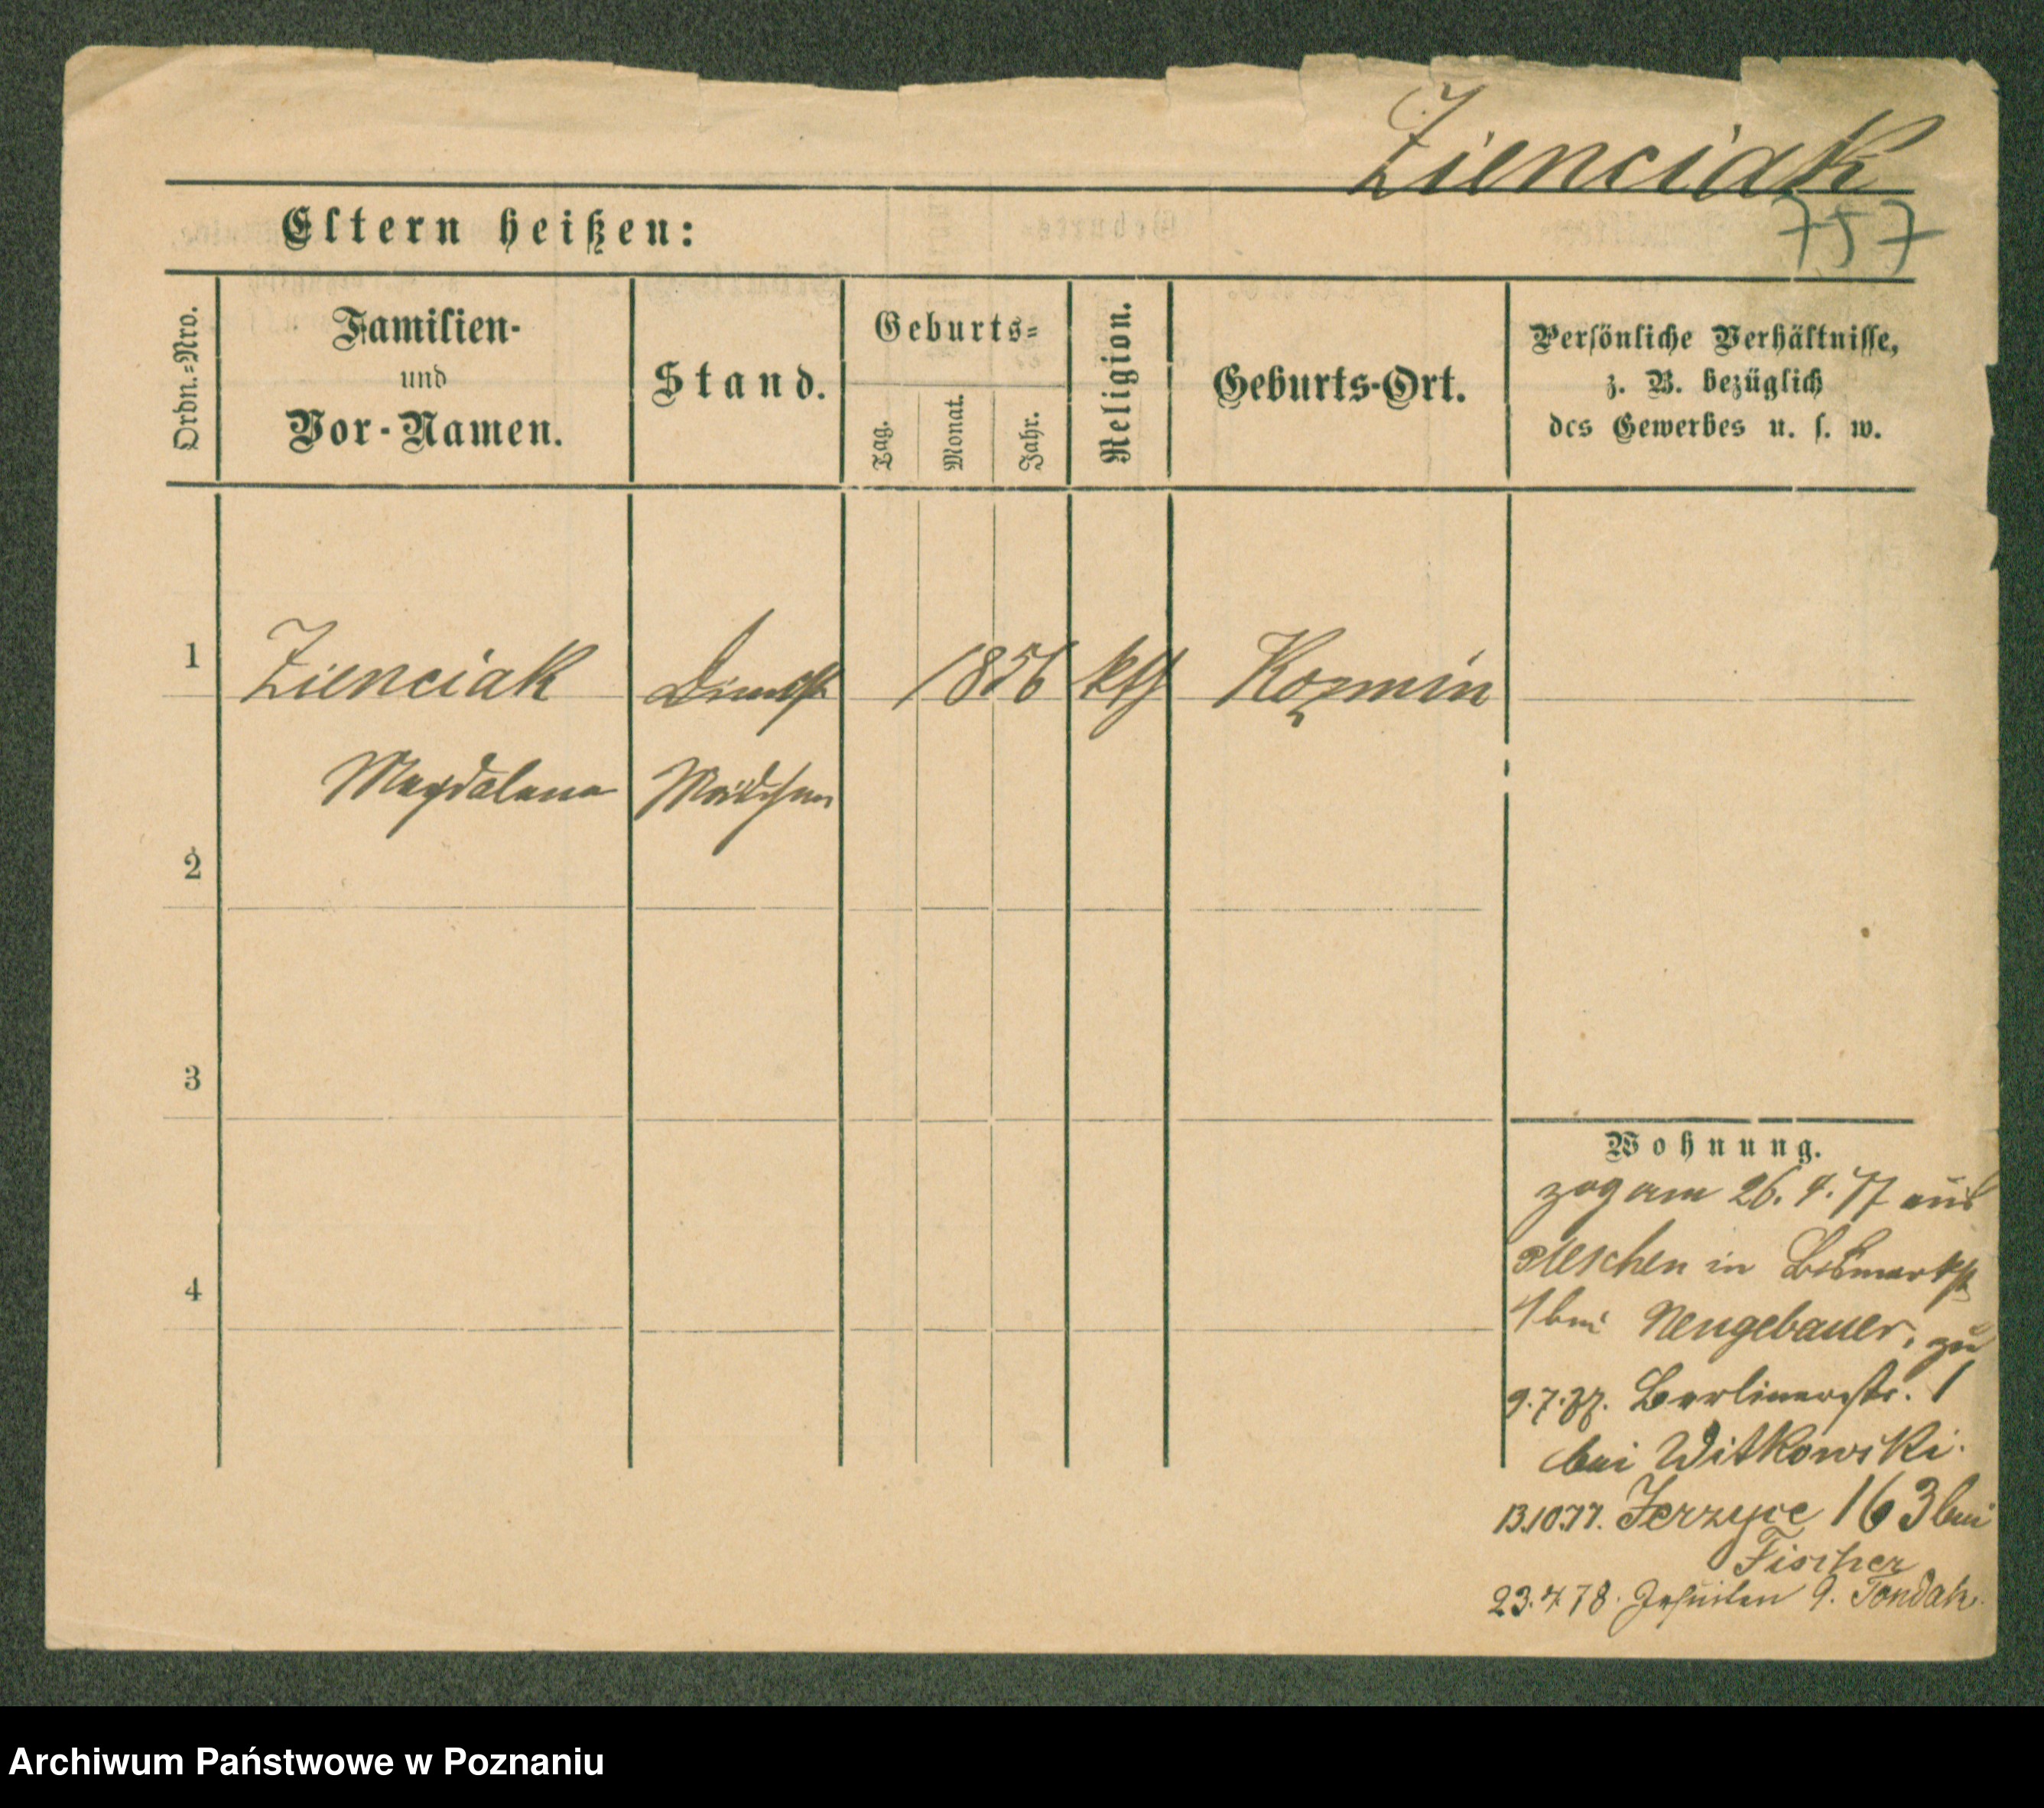 Zienciak
757
Eltern heißen:
Ordn.-Nro.
Familien-
und
Vor-Namen.
Stand.
Geburts-
Tag.
Monat.
Jahr.
Religion.
Geburts-Ort.
Persönliche Verhältnisse,
z. B. bezüglich
des Gewerbes u. s. w.
1 Zienciak Dienst 1856 kth Kozmin
Magdalena Mädchen
2
3
4
Wohnung.
zog am 26. 4. 77 aus
Pleschen in Bismarkstr
1 bei Neugebauer, zu
9.7.77. Berlinerstr. 1
bei Witkowski.
13.10.77. Jerzyce 163 bei
Fischer
23.4.78. Jesuiten 9. Tondak.
Archiwum Państwowe w Poznaniu